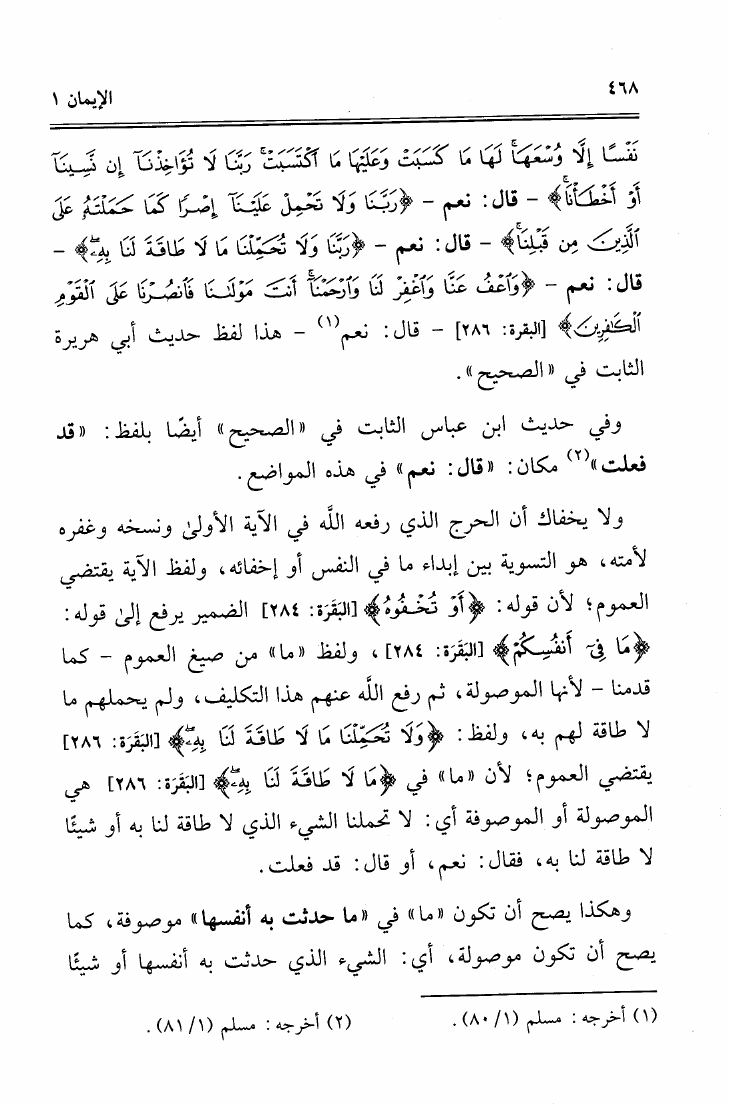 ٤٦٨
الإيمان ١
نَفْسًا إِلَّا وُسْعَهَاۚ لَهَا مَا كَسَبَتْ وَعَلَيْهَا مَا ٱكْتَسَبَتْۗ رَبَّنَا لَا تُؤَاخِذْنَآ إِن نَّسِينَآ
أَوْ أَخْطَأْنَاۚ﴾ – قال: نعم – ﴿رَبَّنَا وَلَا تَحْمِلْ عَلَيْنَآ إِصْرًا كَمَا حَمَلْتَهُۥ عَلَى
ٱلَّذِينَ مِن قَبْلِنَاۚ﴾ – قال: نعم – ﴿رَبَّنَا وَلَا تُحَمِّلْنَا مَا لَا طَاقَةَ لَنَا بِهِۦۖ﴾ –
قال: نعم – ﴿وَٱعْفُ عَنَّا وَٱغْفِرْ لَنَا وَٱرْحَمْنَآۚ أَنتَ مَوْلَىٰنَا فَٱنصُرْنَا عَلَى ٱلْقَوْمِ
ٱلْكَٰفِرِينَ﴾ [البقرة: ٢٨٦] – قال: نعم(١) – هذا لفظ حديث أبي هريرة
الثابت في «الصحيح».
وفي حديث ابن عباس الثابت في «الصحيح» أيضًا بلفظ: «قد
فعلت»(٢) مكان: «قال: نعم» في هذه المواضع.
ولا يخفاك أن الحرج الذي رفعه اللَّه في الآية الأولىٰ ونسخه وغفره
لأمته، هو التسوية بين إبداء ما في النفس أو إخفائه، ولفظ الآية يقتضي
العموم؛ لأن قوله: ﴿أَوْ تُخْفُوهُ﴾ [البَقَرَة: ٢٨٤] الضمير يرفع إلىٰ قوله:
﴿مَا فِىٓ أَنفُسِكُمْ﴾ [البَقَرَة: ٢٨٤]، ولفظ «ما» من صيغ العموم – كما
قدمنا – لأنها الموصولة، ثم رفع اللَّه عنهم هذا التكليف، ولم يحملهم ما
لا طاقة لهم به، ولفظ: ﴿وَلَا تُحَمِّلْنَا مَا لَا طَاقَةَ لَنَا بِهِۦۖ﴾ [البَقَرَة: ٢٨٦]
يقتضي العموم؛ لأن «ما» في ﴿مَا لَا طَاقَةَ لَنَا بِهِۦۖ﴾ [البَقَرَة: ٢٨٦] هي
الموصولة أو الموصوفة أي: لا تحملنا الشيء الذي لا طاقة لنا به أو شيئًا
لا طاقة لنا به، فقال: نعم، أو قال: قد فعلت.
وهكذا يصح أن تكون «ما» في «ما حدثت به أنفسها» موصوفة، كما
يصح أن تكون موصولة، أي: الشيء الذي حدثت به أنفسها أو شيئًا
(١) أخرجه: مسلم (١/ ٨٠).
(٢) أخرجه: مسلم (١/ ٨١).